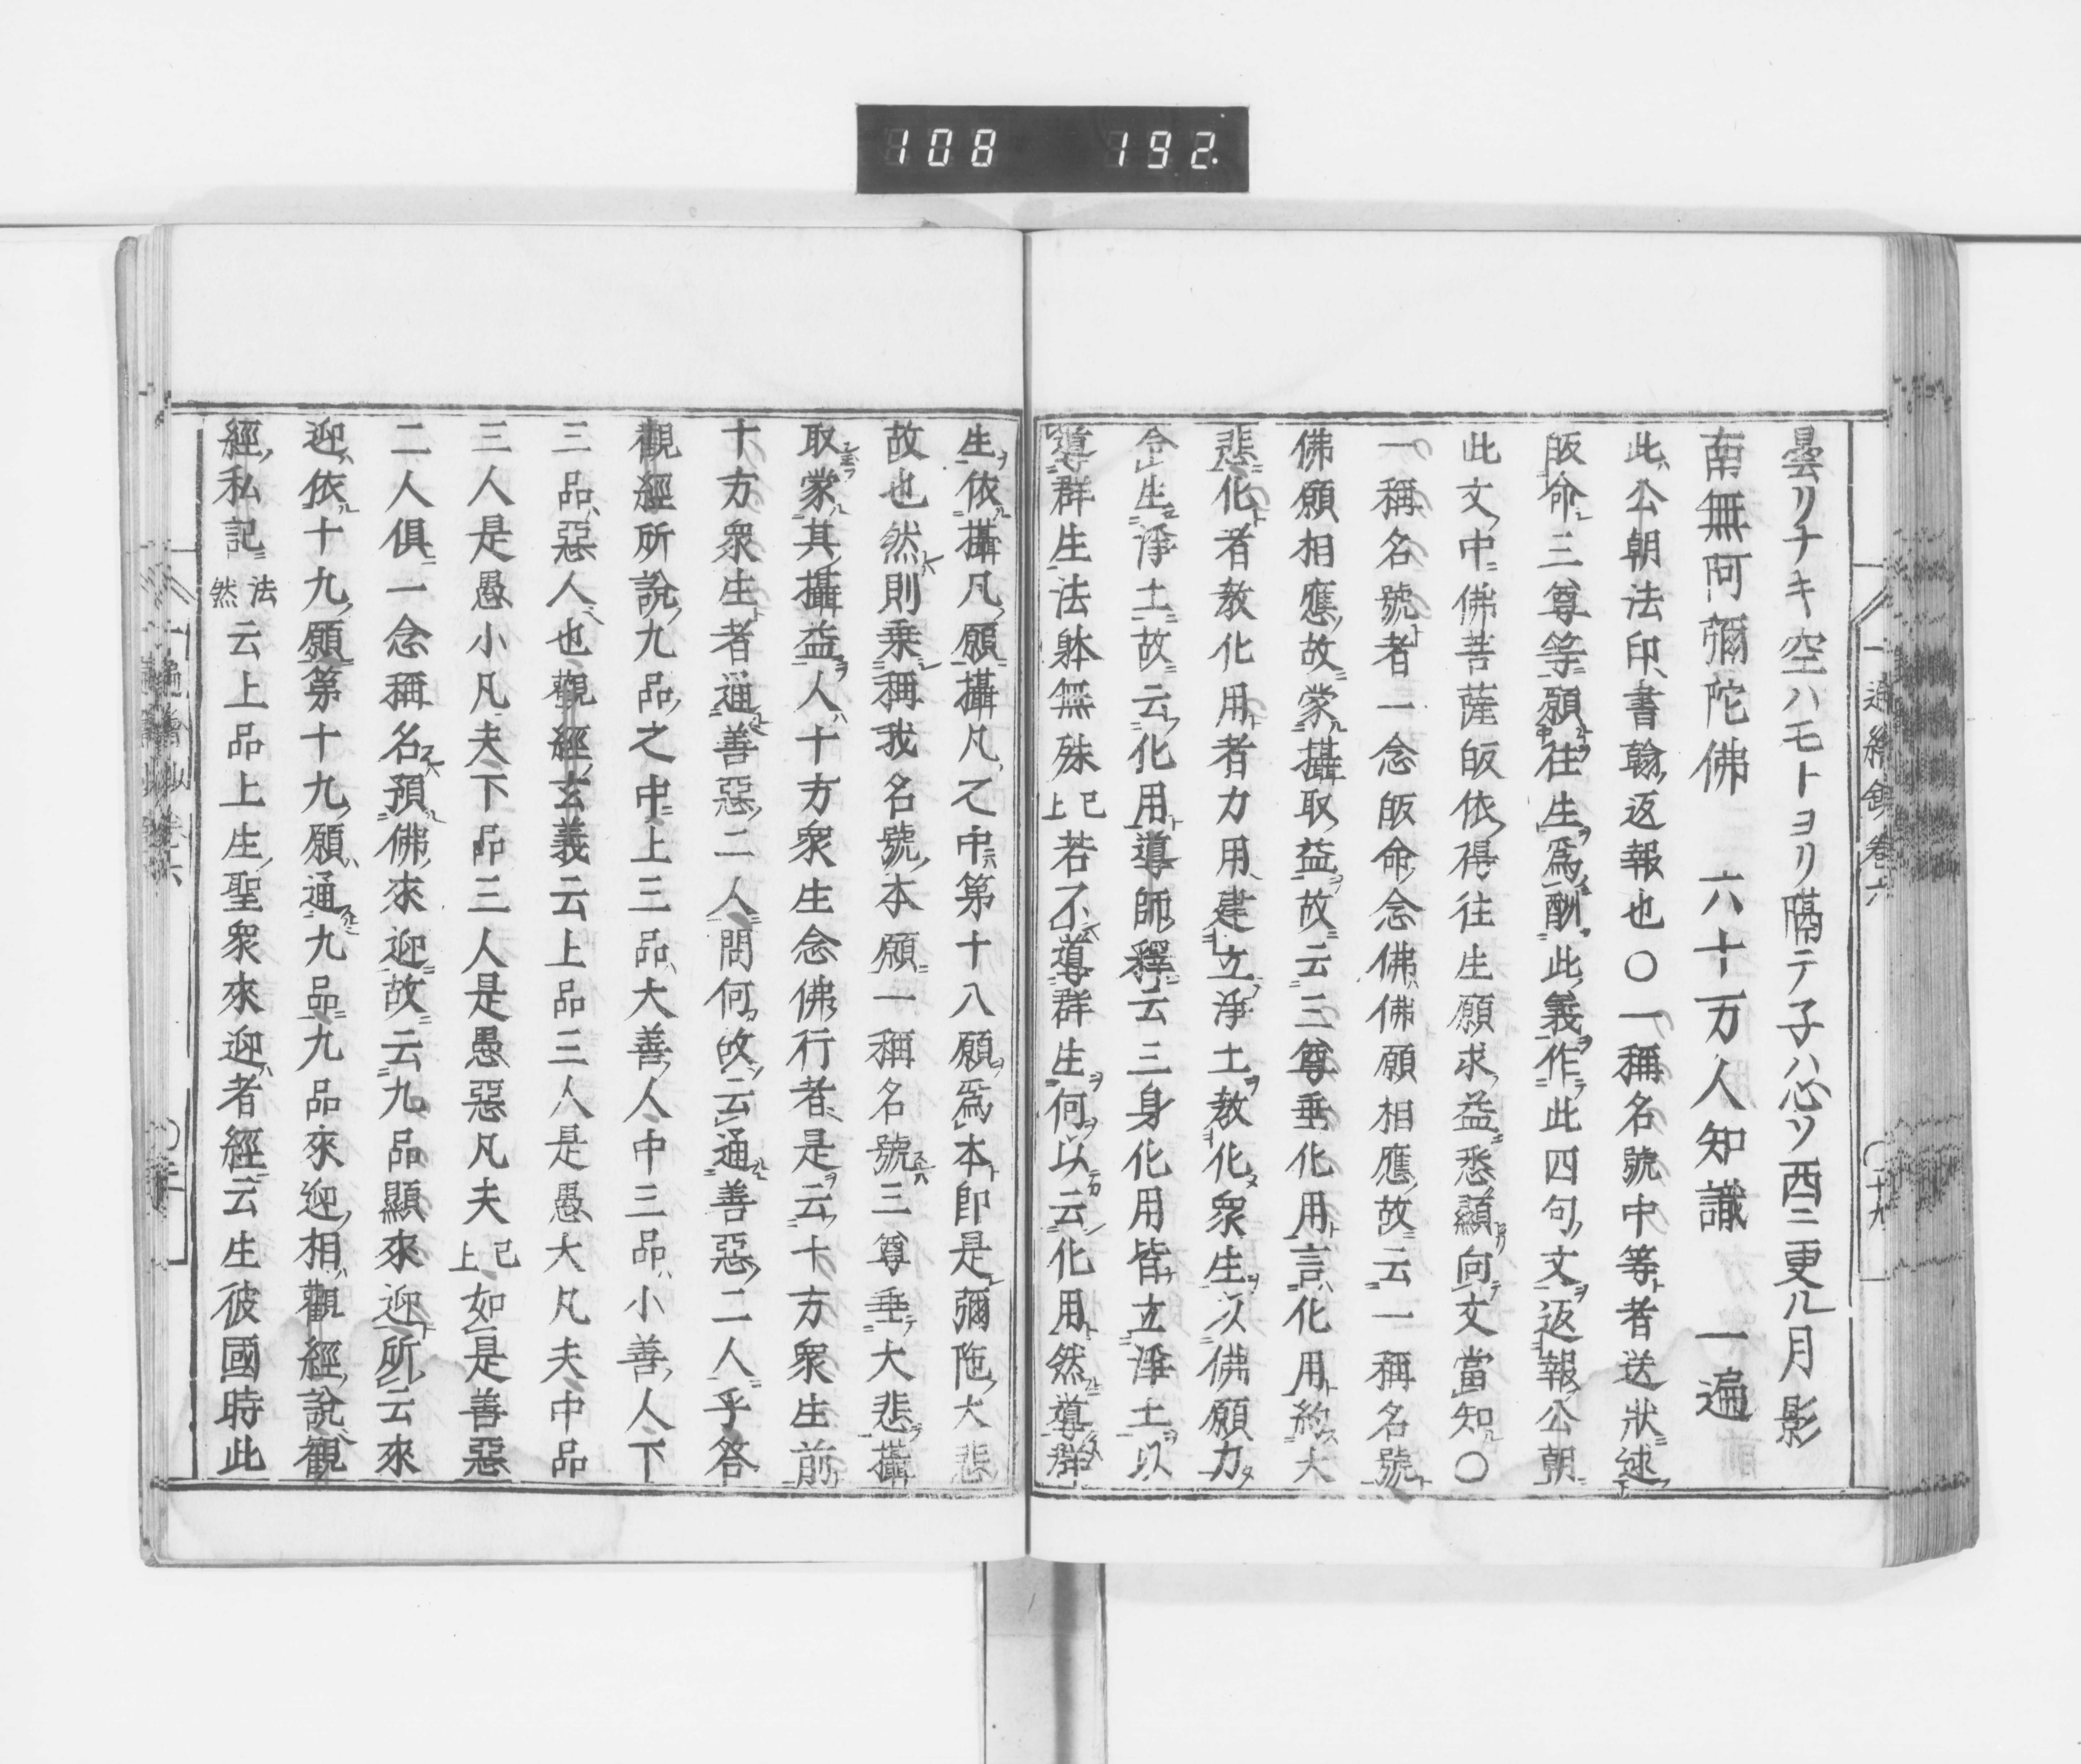 108 192
曇リナキ空ハモトヨリ隔テ子ハ心ソ西ニ更ル月影
南無阿彌陀佛 六十万人知識 一遍
此公朝法印書翰返報也〇一稱名號中等者送狀述
皈命三尊等願往生爲酬此義作此四句文返報公朝
此文中佛菩薩皈依得往生願求益悉顯向文當知〇
一稱名號者一念皈命念佛佛願相應故云一稱名號
佛願相應故蒙攝取益故云三尊垂化用言化用約大
悲化者敎化用者力用建立淨土敎化衆生以佛願力
令生淨土故云化用導師釋云三身化用皆立淨土以
導群生法躰無殊已上若不導群生何以云化用然導群
生依攝凡願攝凡之中第十八願爲本卽是彌陀大悲
故也然則乗稱我名號本願一稱名號三尊垂大悲攝
取蒙其攝益人十方衆生念佛行者是云十方衆生前
十方衆生者通善惡二人問何故云通善惡二人乎答
觀經所說九品之中上三品大善人中三品小善人下
三品惡人也觀經玄義云上品三人是愚大凡夫中品
三人是愚小凡夫下品三人是愚惡凡夫已上如是善惡
二人俱一念稱名預佛來迎故云九品顯來迎所云來
迎依十九願第十九願通九品九品來迎相觀經說觀
經私記法然云上品上生聖衆來迎者經云生彼國時此